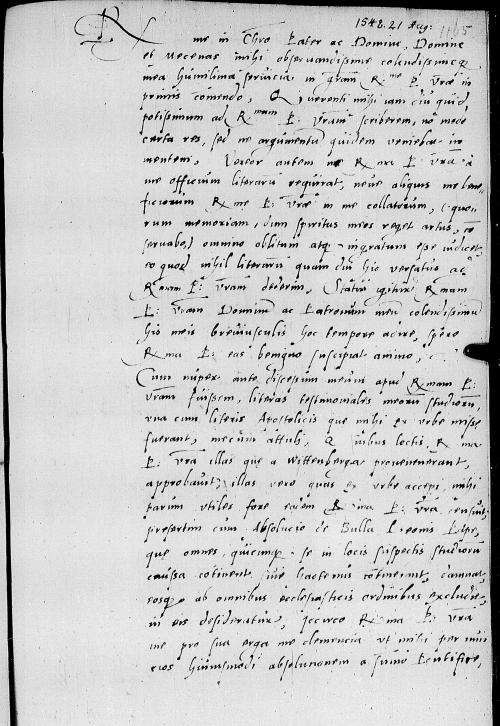 1548. 21 Aug: 1165
Rme in Chro Pater ac Domine, Domine
et Mecenas mihi observandissime colendissimeq
mea humilima servicia in gram Rme P. Vrae in
primis comendo, Querenti mihi iam diu quid,
potissimum ad Rmam P. Vram scriberem, no modo
certa res, sed ne argumentu quidem veniebat in
mentem, Vereor autem ne Rma P. Vra a
me officium literaru requirat, neve aliquis me bene
ficiorum Rme P. Vrae in me collatorum, (quo
rum memoriam, dum spiritus meos reget artus, co
servabo) omnino oblitum atq ingratum esse iudicet,
eo quod nihil literaru quam diu hic versatus ad
Rmam P. Vram dederim, Statui igitur Rmam
P. Vram Dominu ac Patronum meu colendissimu
his meis breviusculis hoc tempore adire, spero
Rma P. eas benigno suscipiat animo,
Cum nuper ante discessum meum apud Rmam P.
Vram fuissem, literas testimoniales meoru studioru,
una cum literis Apostolicis que mihi ex urbe misse
fuerant, mecum attuli, Quibus lectis Rma
P. Vra illas que a Wittenberga provenerant,
approbavit, illas vero quas ex urbe accepi, mihi
parum utiles fore eidem Rma P. Vra censuit,
presertim cum Absolucio de Bulla Leonis Pape,
que omnes, quicunq se in locis suspectis studioru
caussa cotinent, sive hactenus cotinerant, damnat,
eosq ab omnibus ecclesiasticis ordinibus excludit,
in eis desideratur, Iccirco Rma P. Vra
me pro sua erga me clemencia ut mihi per ami
cos huiusmodi absolucionem a Sumo Pontifice,